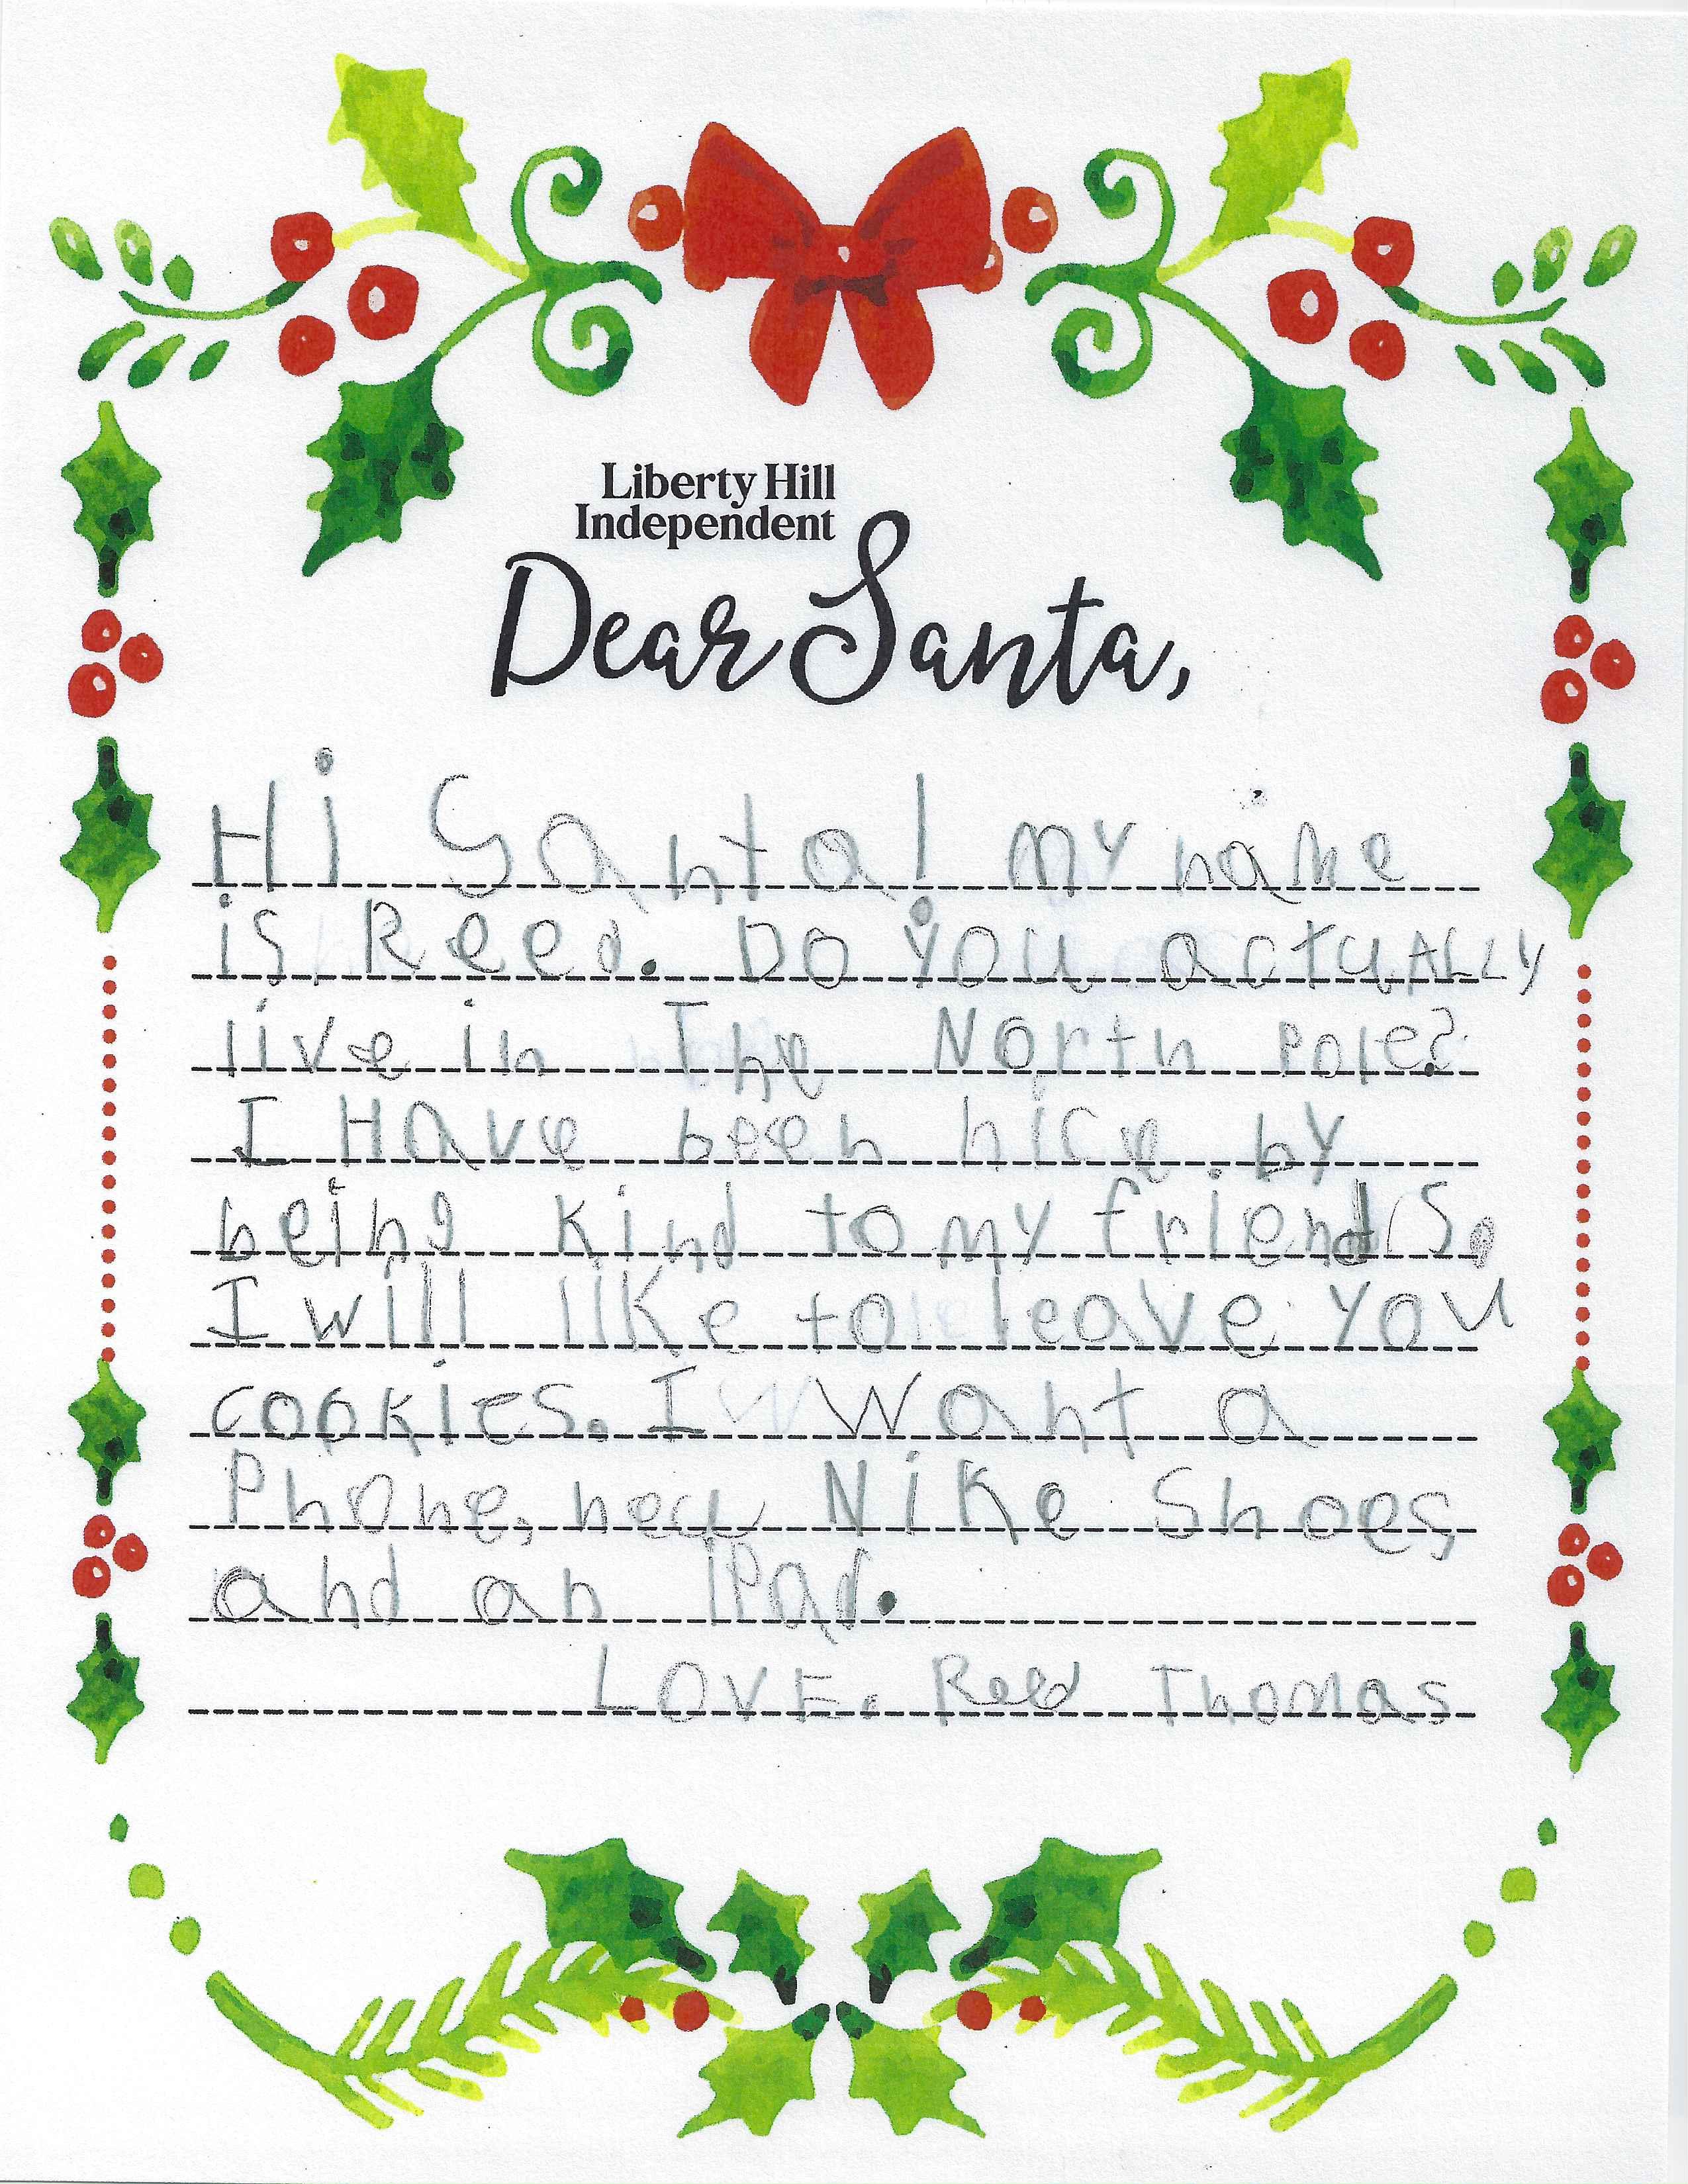 Liberty Hill
Independent
Dear Santa,
Hi Santa! my name
is Reed. Do you actuALLY
live in The North Pole?
I HAve been nice by
being kind to my friends.
I will like to leave you
cookies. I want a
Phone, new Nike Shoes
and an iPad.
LOVE. Reed Thomas